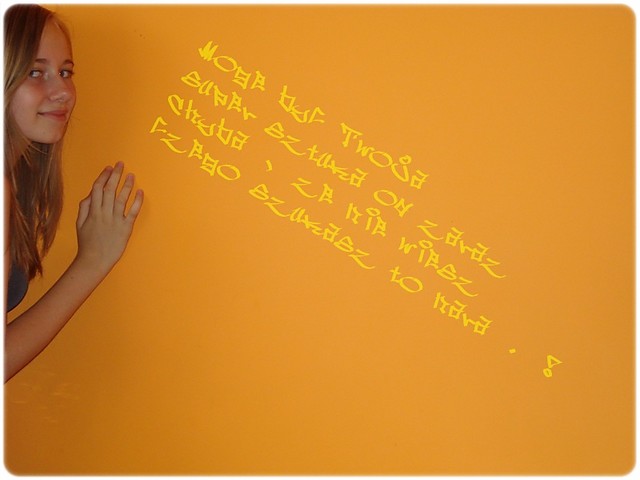 Moge byc Twoja
super sztuka od zaraz
Chyba , ze nie wiesz
czego szukasz to nara . !